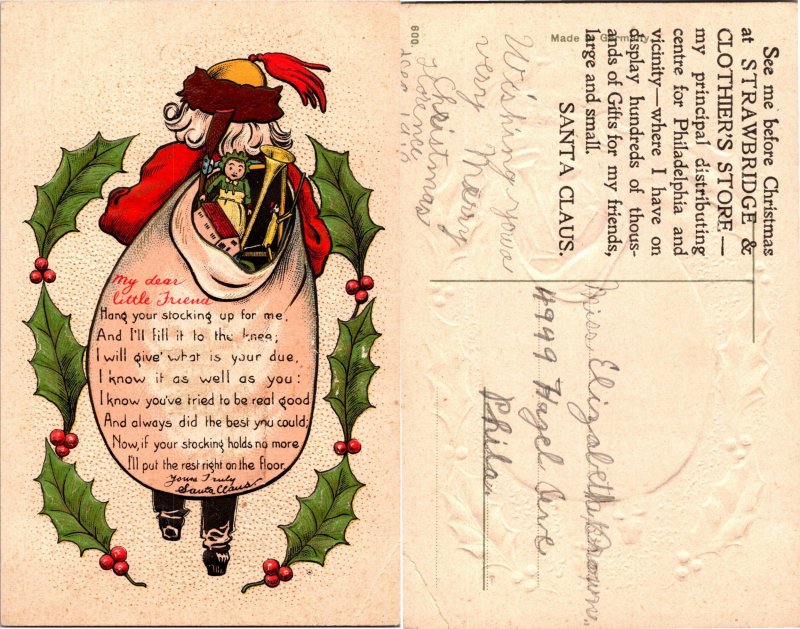 My dear
little Friend
Hang your stocking up for me,
And I'll fill it to the knee;
I will give what is your due,
I know it as well as you:
I know you've tried to be real good
And always did the best you could;
Now, if your stocking holds no more
I'll put the rest right on the floor.
Yours Truly
Santa Claus
600.
Made in Germany.
See me before Christmas
at STRAWBRIDGE &
CLOTHIER'S STORE—
my principal distributing
centre for Philadelphia and
vicinity—where I have on
display hundreds of thous-
ands of Gifts for my friends,
large and small.
SANTA CLAUS.
Wishing you a
very Merry
Christmas
Florence
Miss Elizabeth Brown.
4999 Hazel Ave
Phila